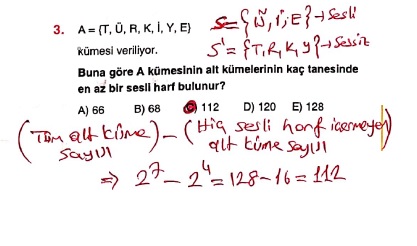 3. A = {T, Ü, R, K, İ, Y, E} S = {Ü, İ, E} → Sesli
kümesi veriliyor. S' = {T, R, K, Y} → Sessiz
Buna göre A kümesinin alt kümelerinin kaç tanesinde
en az bir sesli harf bulunur?
A) 66 B) 68 C) 112 D) 120 E) 128
(Tüm alt küme sayısı) - (Hiç sesli harf içermeyen alt küme sayısı)
⇒ 2⁷ - 2⁴ = 128 - 16 = 112